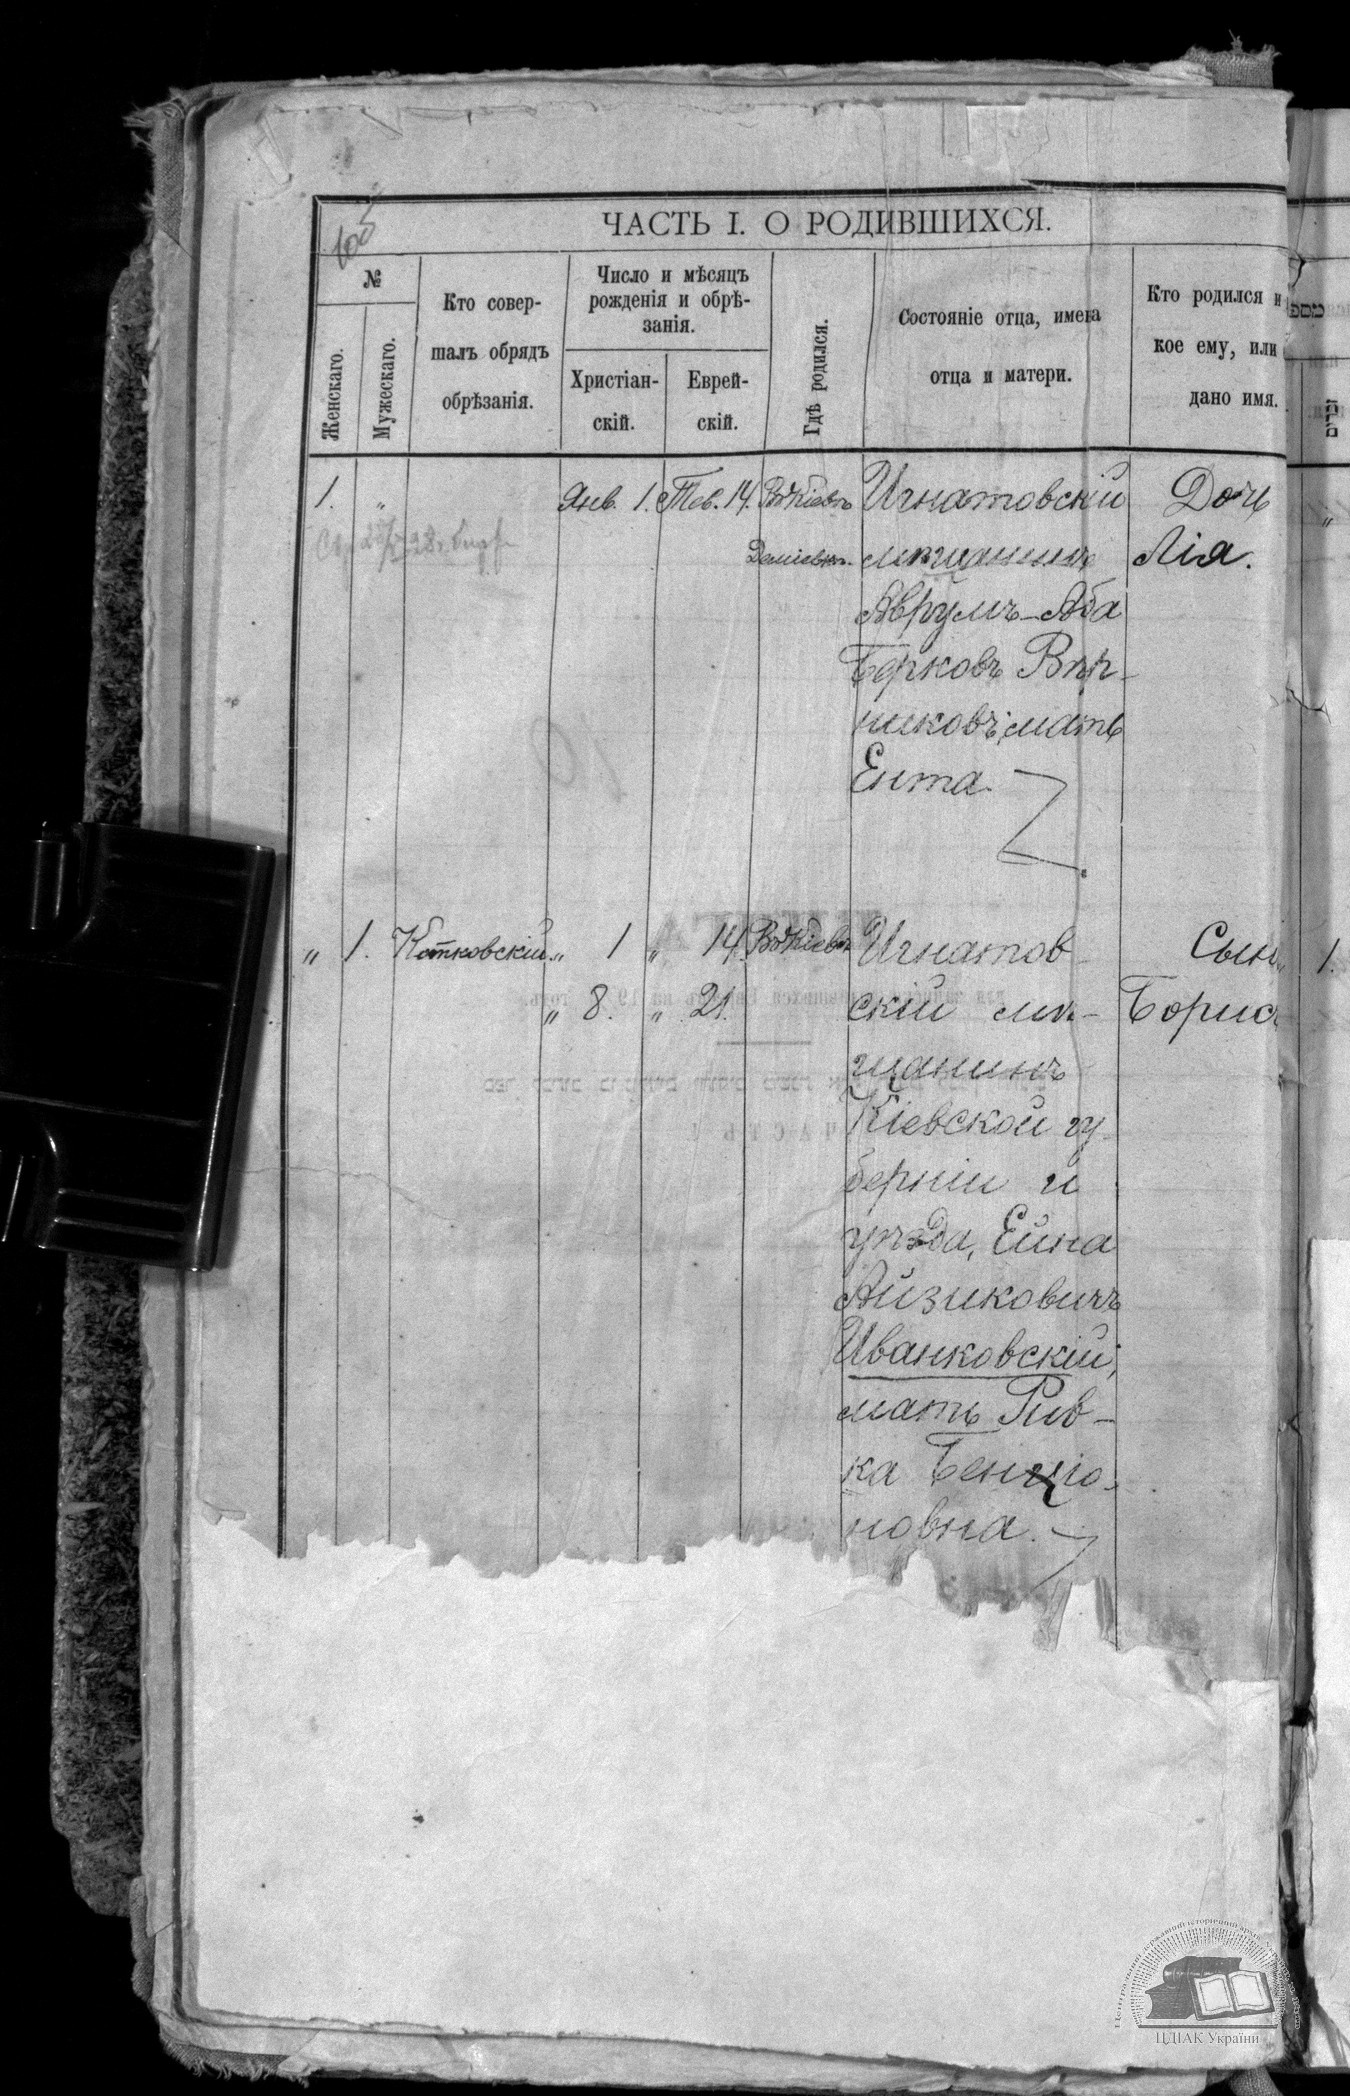 ЧАСТЬ I. О РОДИВШИХСЯ.
№
Женскаго.
Мужескаго.
Кто совер-
шалъ обрядъ
обрѣзанія.
Число и мѣсяцъ
рожденія и обрѣ-
занія.
Христіан-
скій.
Еврей-
скій.
Гдѣ родился.
Состояніе отца, имена
отца и матери.
Кто родился и
кое ему, или
дано имя.
1. „ Янв. 1. Тев. 14. Въ Кіевѣ Игнатовскій Дочь
Деміевкѣ. мѣщанинъ Лія.
Аврумъ-Аба
Берковъ Вѣр-
никовъ, мать
Ента.
„ 1. Котковскій „ 1 „ 14. Въ Кіевѣ Игнатов- Сынъ
„ 8. „ 21. скій мѣ- Борисъ
щанинъ
Кіевской гу-
берніи и
уѣзда, Ейна
Айзиковичъ
Иванковскій,
мать Рив-
ка Бенціо-
новна.
1.
ЦДІАК України